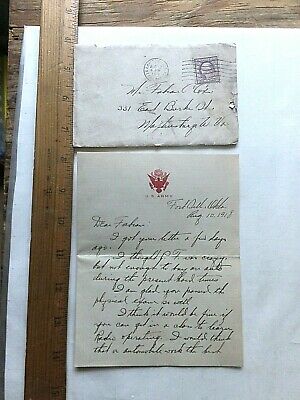 Mr. Fabian Cox
331 East Burke St.
Martinsburg W. Va
U.S. ARMY
Fort Sill, Okla.
Aug 10, 1918
Dear Fabian:
I got your letter a few days
ago.
I thought I was crazy
but not enough to buy an auto
during the present hard times
I am glad you passed the
physical exam so well
I think it would be fine if
you can get in a class to learn
Radio operating. I would think
that or automobile work the best